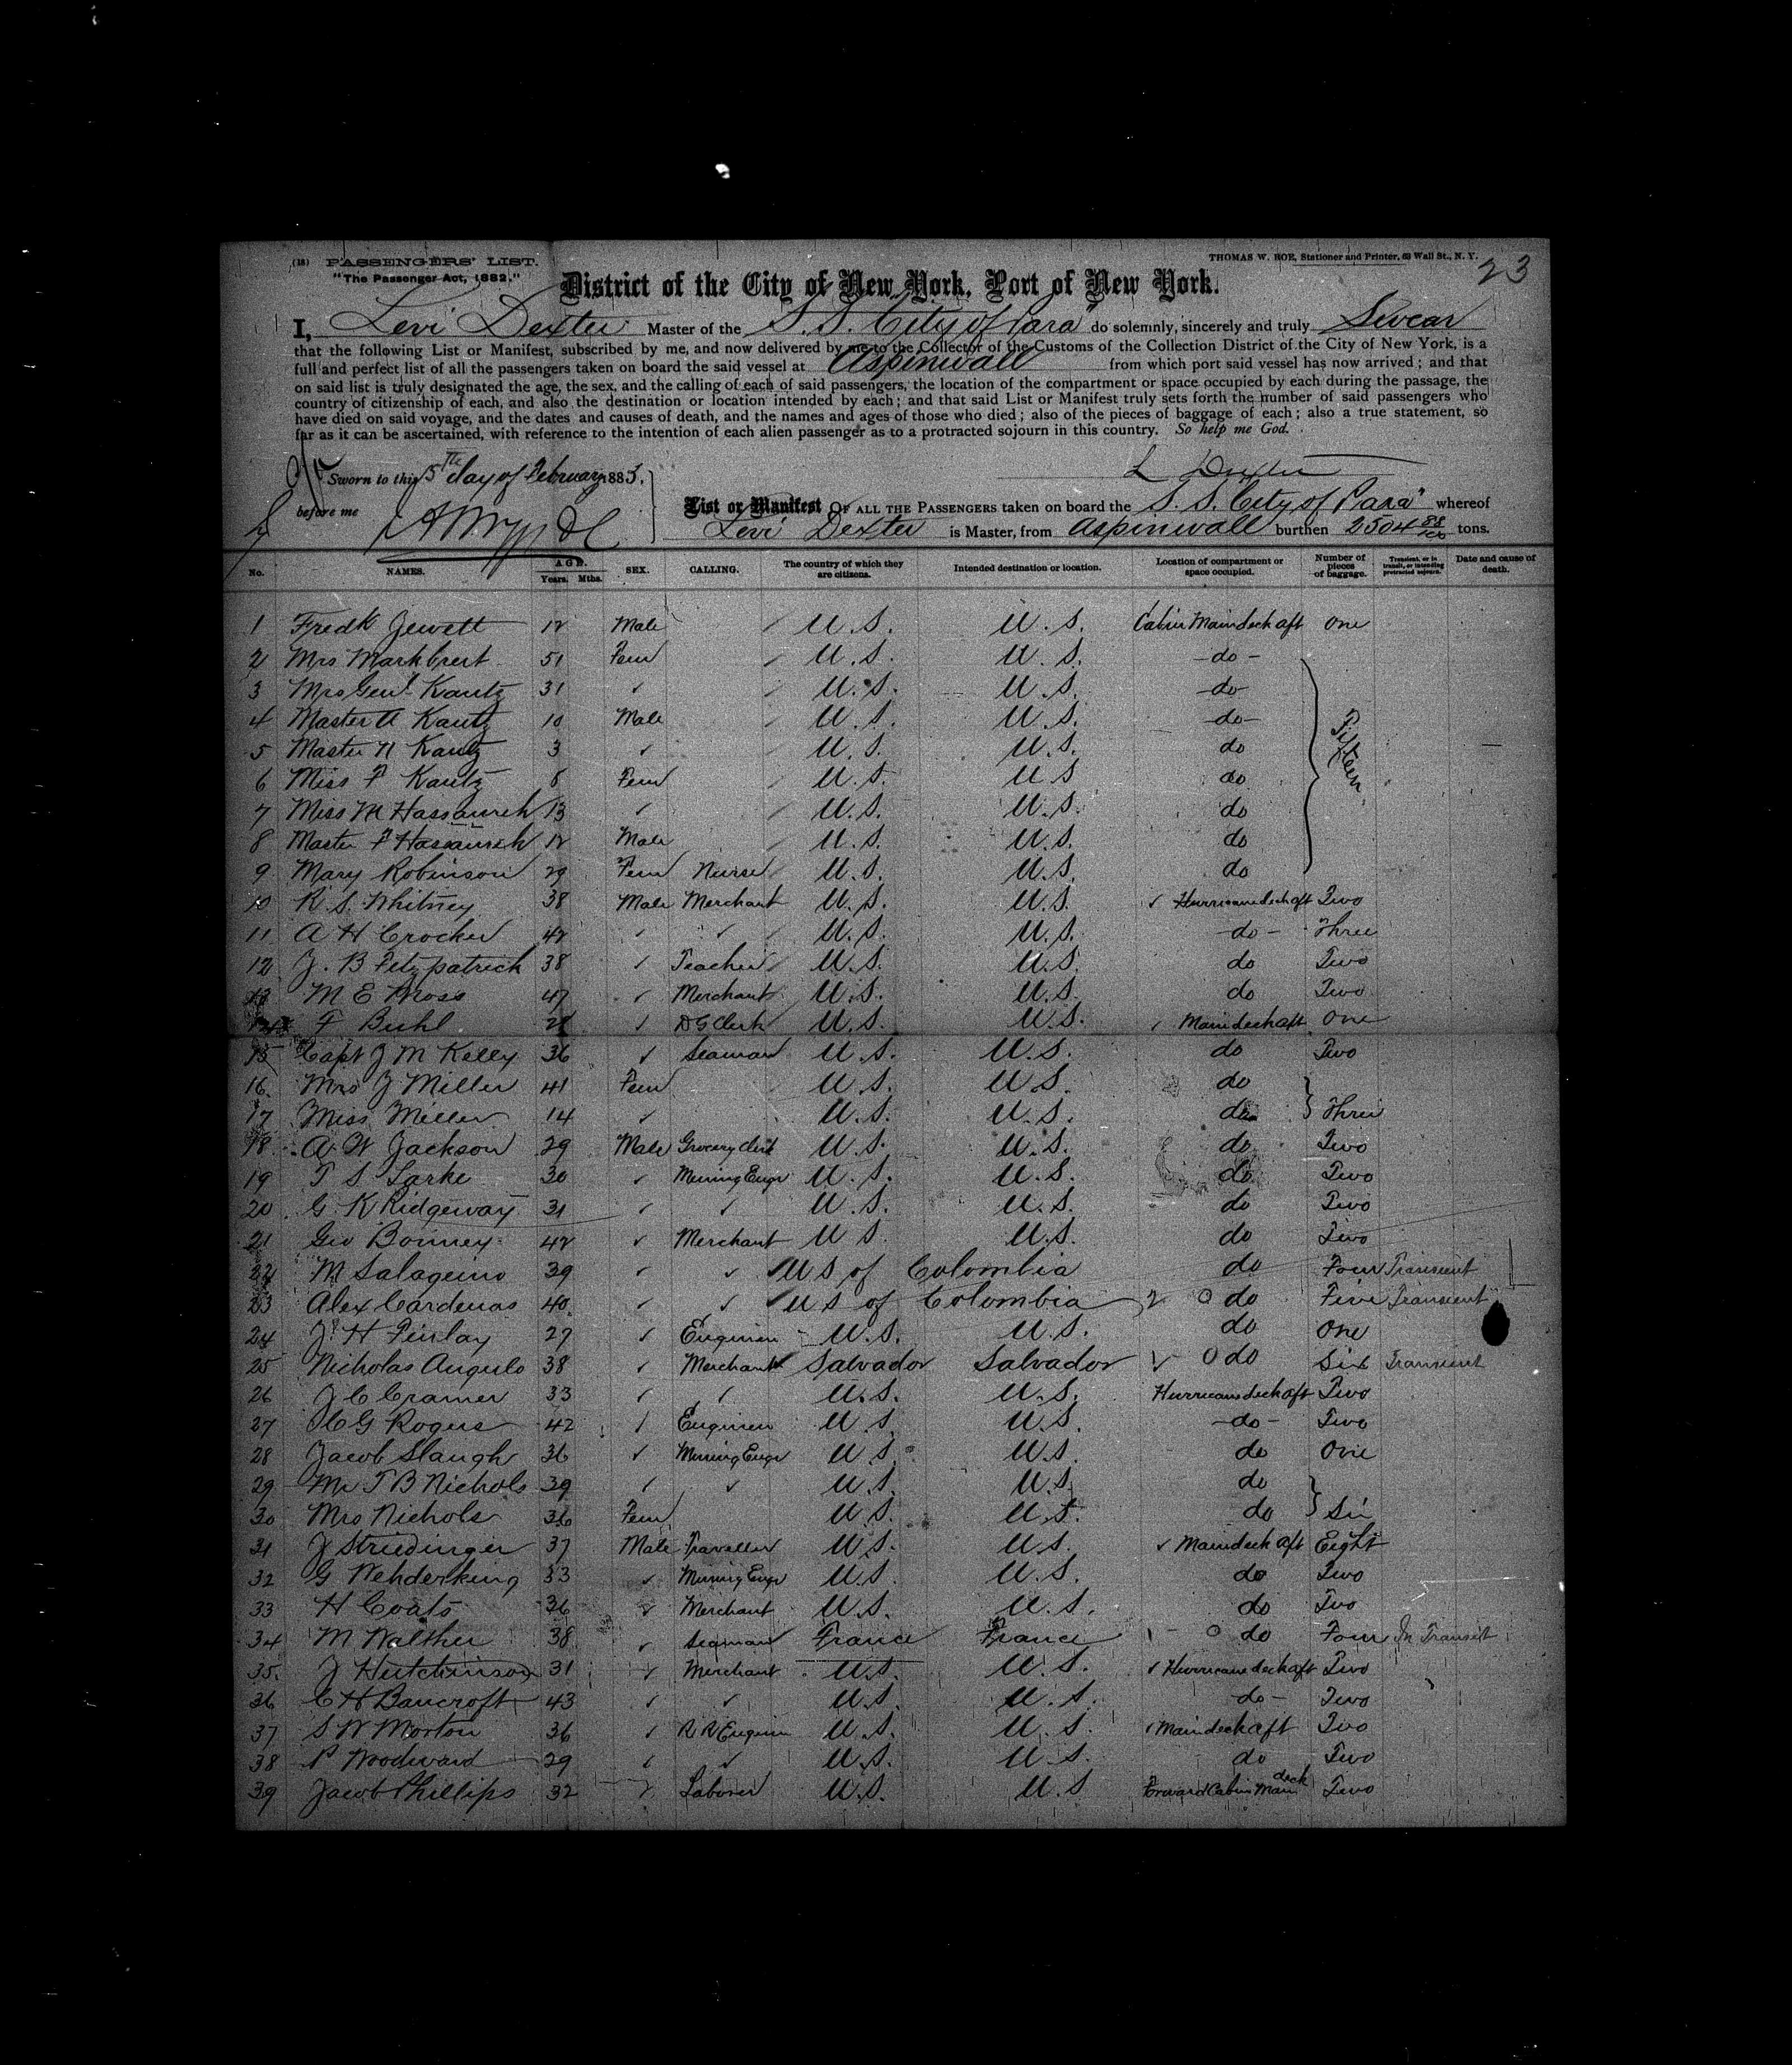 (18) PASSENGERS' LIST. THOMAS W. ROE, Stationer and Printer, 63 Wall St., N. Y. 23
"The Passenger Act, 1882."
District of the City of New York, Port of New York.
I, Levi Dexter Master of the S. S. City of Para" do solemnly, sincerely and truly Swear
that the following List or Manifest, subscribed by me, and now delivered by me to the Collector of the Customs of the Collection District of the City of New York, is a
full and perfect list of all the passengers taken on board the said vessel at Aspinwall from which port said vessel has now arrived; and that
on said list is truly designated the age, the sex, and the calling of each of said passengers, the location of the compartment or space occupied by each during the passage, the
country of citizenship of each, and also the destination or location intended by each; and that said List or Manifest truly sets forth the number of said passengers who
have died on said voyage, and the dates and causes of death, and the names and ages of those who died; also of the pieces of baggage of each; also a true statement, so
far as it can be ascertained, with reference to the intention of each alien passenger as to a protracted sojourn in this country. So help me God.
L Dexter
Sworn to this 5th day of February 1885.
before me
List or Manifest OF ALL THE PASSENGERS taken on board the S. S. City of Para" whereof
Levi Dexter is Master, from Aspinwall burthen 2504 88/100 tons.
No. NAMES. AGE. Years. Mths. SEX. CALLING. The country of which they are citizens. Intended destination or location. Location of compartment or space occupied. Number of pieces of baggage. Transient, or in transit, or intending protracted sojourn. Date and cause of death.
1 Fredk Jewett 12 Male U.S. U.S. Cabin Maindeck aft One
2 Mrs Markbreit 51 Fem U.S. U.S. do
3 Mrs Genl Kautz 31 ✓ U.S. U.S. do
4 Master A Kautz 10 Male U.S. U.S. do
5 Master N Kautz 3 ✓ U.S. U.S. do
6 Miss F Kautz 8 Fem U.S. U.S do Fifteen
7 Miss M Hassaurek 13 ✓ U.S. U.S. do
8 Master F Hassaurek 12 Male U.S. U.S. do
9 Mary Robinson 29 Fem Nurse U.S. U.S. do
10 R. S. Whitney 38 Male Merchant U.S. U.S. ✓ Hurricanedeck aft Two
11 A H Crocker 42 ✓ ✓ U.S. U.S. do Three
12 J. B Fitzpatrick 38 ✓ Teacher U.S. U.S. do Two
13 M E Moss 47 ✓ Merchant U.S. U.S. do Two
14 F Buhl 28 ✓ D G Clerk U.S. U.S. ✓ Maindeck aft One
15 Capt J M Kelly 36 ✓ Seaman U.S. U.S. do Two
16 Mrs J Miller 41 Fem U.S. U.S. do
17 Miss Miller 14 ✓ U.S. U.S. do Three
18 A W Jackson 29 Male Grocery Clerk U.S. U.S. do Two
19 T S Larke 30 ✓ Mining Engr U.S. U.S. do Two
20 G K Ridgeway 31 ✓ ✓ U.S. U.S. do Two
21 Geo Bonney 42 ✓ Merchant U S. U.S. do Two
22 M Salageino 39 ✓ ✓ U S of Colombia do Four Transient
23 Alex Cardenas 40 ✓ ✓ U S of Colombia do Five Transient
24 J. H Finlay 27 ✓ Engineer U.S. U.S. do One
25 Nicholas Angulo 38 ✓ Merchant Salvador Salvador do Six Transient
26 J C Cramer 33 ✓ ✓ U.S. U.S. Hurricanedeck aft Two
27 H G Rogers 42 ✓ Engineer U.S. U.S. do Two
28 Jacob Slaugh 36 ✓ Mining Engr U.S. U.S. do One
29 Mr T B Nichols 39 ✓ ✓ U.S. U.S. do
30 Mrs Nichols 36 Fem U.S. U.S. do Six
31 J Striedinger 37 Male Traveller U.S. U.S. ✓ Maindeck aft Eight
32 G Wehderking 33 ✓ Mining Engr U.S. U.S. do Two
33 H Coats 36 ✓ Merchant U.S. U.S. do Two
34 M Walther 38 ✓ Seaman France France do Four In Transit
35 J Hutchinson 31 ✓ Merchant U.S. U.S. ✓ Hurricanedeck aft Two
36 C H Bancroft 43 ✓ ✓ U.S. U.S. do Two
37 S W Morton 36 ✓ R R Engineer U.S. U.S. ✓ Maindeck aft Two
38 P Woodward 29 ✓ ✓ U.S. U.S. do Two
39 Jacob Phillips 32 ✓ Laborer U.S. U.S Forward Cabin Main deck Two